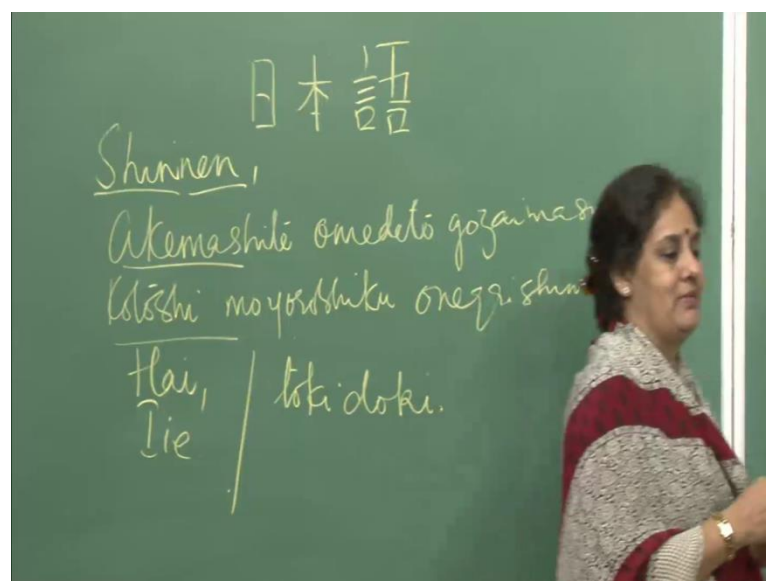 日本語
Shinnen,
Akemashite omedetō gozaimas
Kotoshi moyoroshiku onegaishim
Hai, / tokidoki.
Iie